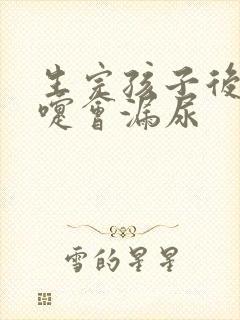 生完孩子後
嚏會漏尿
雪的星星